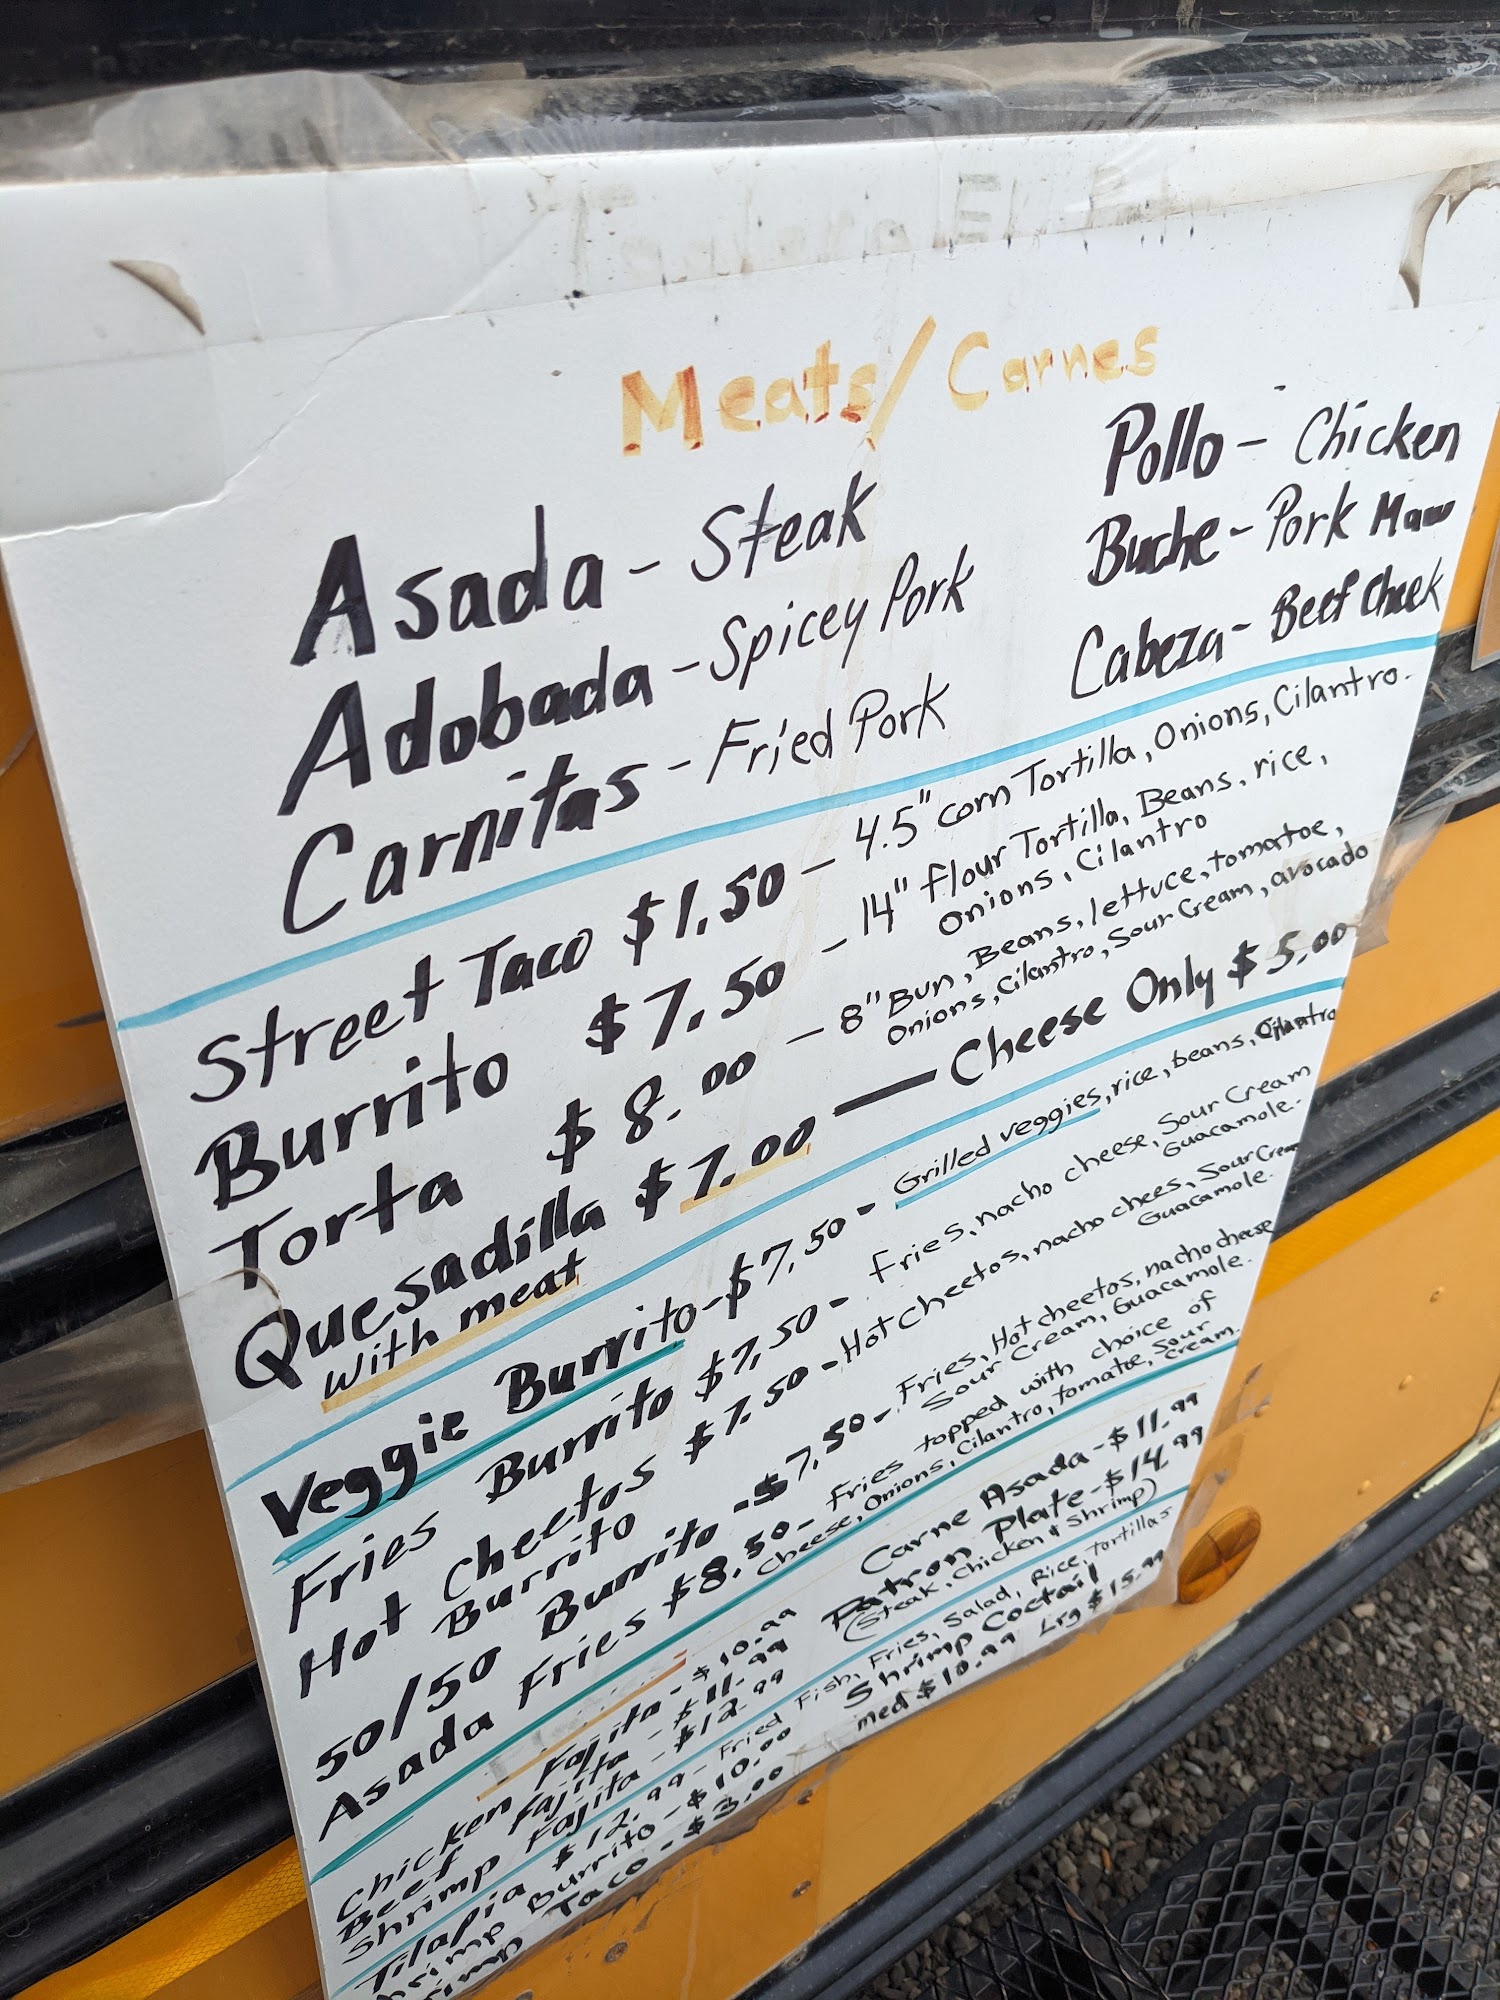 Meats/Carnes
Asada - Steak
Adobada - Spicey Pork
Carnitas - Fried Pork
Pollo - Chicken
Buche - Pork Maw
Cabeza - Beef Cheek
Street Taco $1.50 - 4.5" corn Tortilla, Onions, Cilantro.
Burrito $7.50 - 14" flour Tortilla, Beans, rice,
Onions, Cilantro
Torta $8.00 - 8" Bun, Beans, lettuce, tomatoe,
Onions, Cilantro, Sour Cream, avocado
Quesadilla $7.00 — Cheese Only $5.00
With meat
Veggie Burrito - $7.50 - Grilled veggies, rice, beans, Cilantro
Fries Burrito $7.50 - Fries, nacho cheese, Sour Cream
Guacamole.
Hot Cheetos $7.50 - Hot Cheetos, nacho chees, Sour Cream
Burrito Guacamole.
50/50 Burrito - $7.50 - Fries, Hot cheetos, nacho cheese
Sour Cream, Guacamole.
Asada Fries $8.50 - Fries topped with choice of
Cheese, Onions, Cilantro, tomatoe, Sour
Cream.
Chicken Fajita - $10.99
Beef Fajita - $11.99
Shrimp Fajita - $12.99
Carne Asada - $11.99
Patron Plate - $14.99
(Steak, Chicken & Shrimp)
Tilapia $12.99 - Fried Fish, Fries, Salad, Rice, Tortillas
Shrimp Burrito - $10.00
Taco - $3.00
Shrimp Coctail
med $10.99 Lrg $15.99